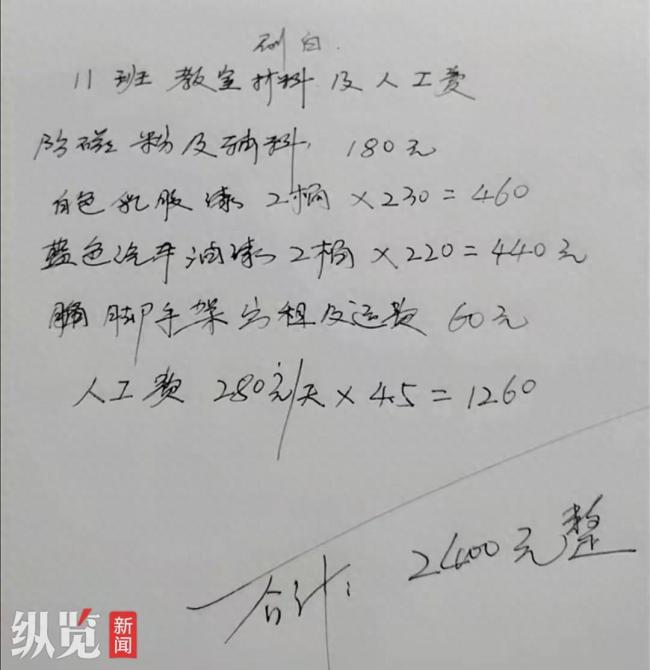 刷白.
11班教室材料及人工费
粉及辅料, 180元
白色乳胶漆2桶×230=460
蓝色汽车油漆2桶×220=440元
脚手架 租及运费 60元
人工费 280元/天×4.5=1260
合计: 2400元整
纵览新闻